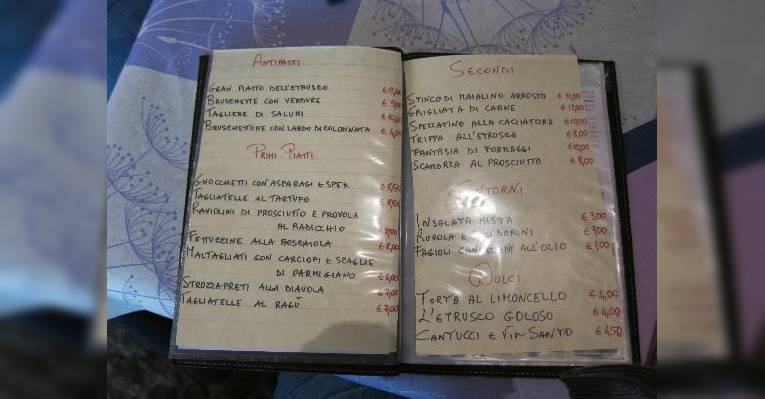 ANTIPASTI
GRAN PIATTO DELL'ETRUSCO
BRUSCHETTE CON VERDURE
TAGLIERE DI SALUMI
BRUSCHETTONE CON LARDO DI COLONNATA € 4,00
PRIMI PIATTI
GNOCCHETTI CON ASPARAGI E SPEK € 8,50
TAGLIATELLE AL TARTUFO € 8,50
RAVIOLINI DI PROSCIUTTO E PROVOLA
AL RADICCHIO 8,50
FETTUCCINE ALLA BOSCAIOLA € 8,00
MALTAGLIATI CON CARCIOFI E SCAGLIE
DI PARMIGIANO
STROZZAPRETI ALLA DIAVOLA 7,00
TAGLIATELLE AL RAGÙ € 7,00
SECONDI
STINCO DI MAIALINO ARROSTO €
GRIGLIATA DI CARNE €
SPEZZATINO ALLA CACCIATORA €10,00
TRIPPA ALL'ETRUSCA € 8,00
FANTASIA DI FORMAGGI €10,00
SCAMORZA AL PROSCIUTTO € 8,00
CONTORNI
INSALATA MISTA € 3,00
RUCOLA E POMODORINI € 3,00
FAGIOLI CANNELLINI ALL'OLIO € 3,00
DOLCI
TORTA AL LIMONCELLO € 4,00
L'ETRUSCO GOLOSO € 4,00
CANTUCCI E VIN SANTO € 4,50